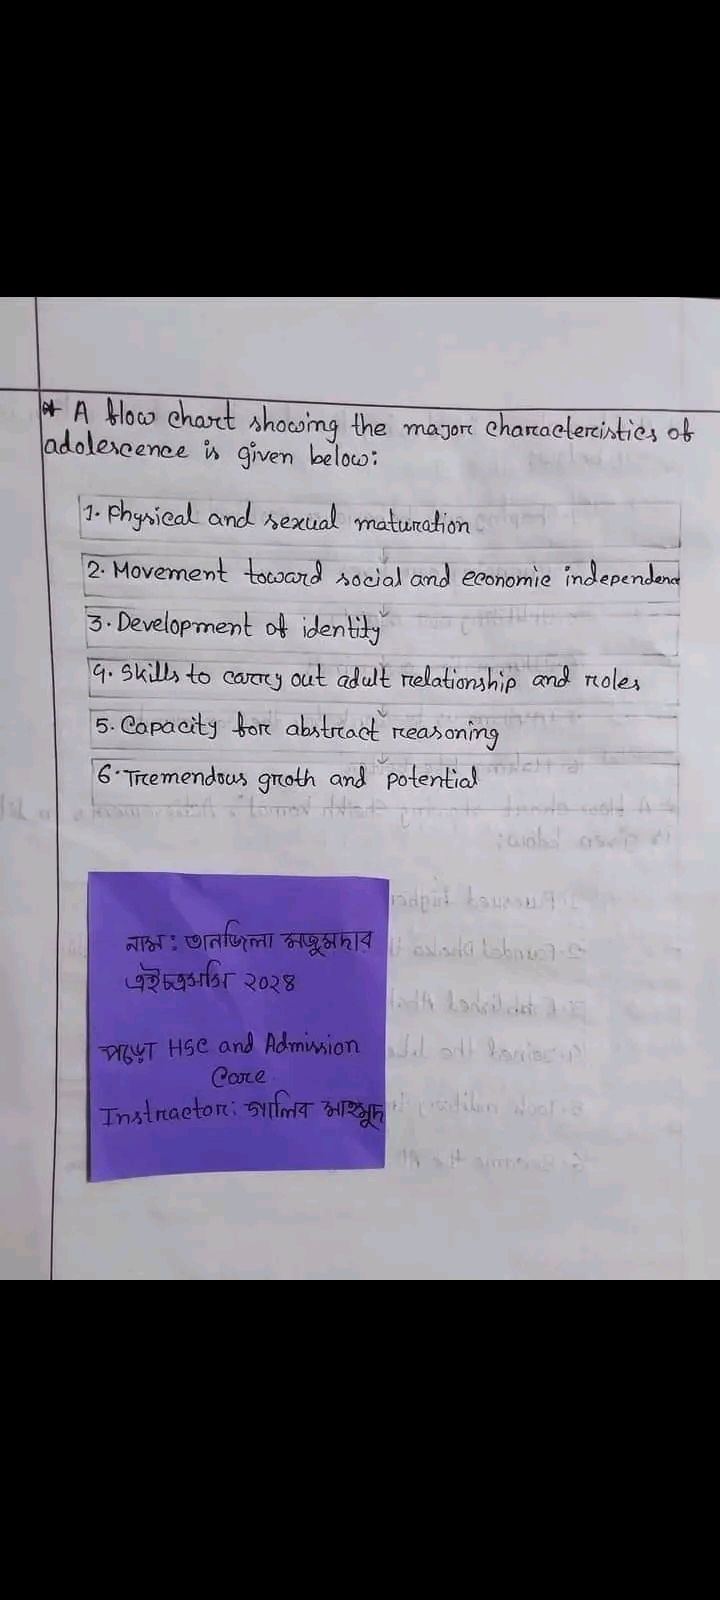 * A flow chart showing the major characteristics of
adolescence is given below:
1. Physical and sexual maturation
2. Movement toward social and economic independenc
3. Development of identity
4. Skills to carry out adult relationship and roles
5. Capacity for abstract reasoning
6. Tremendous groth and potential
নাম : তানজিলা মজুমদার
এইচএসসি ২০২৪
পড়ো HSC and Admission
Care
Instructor: গালিব মাহমুদ